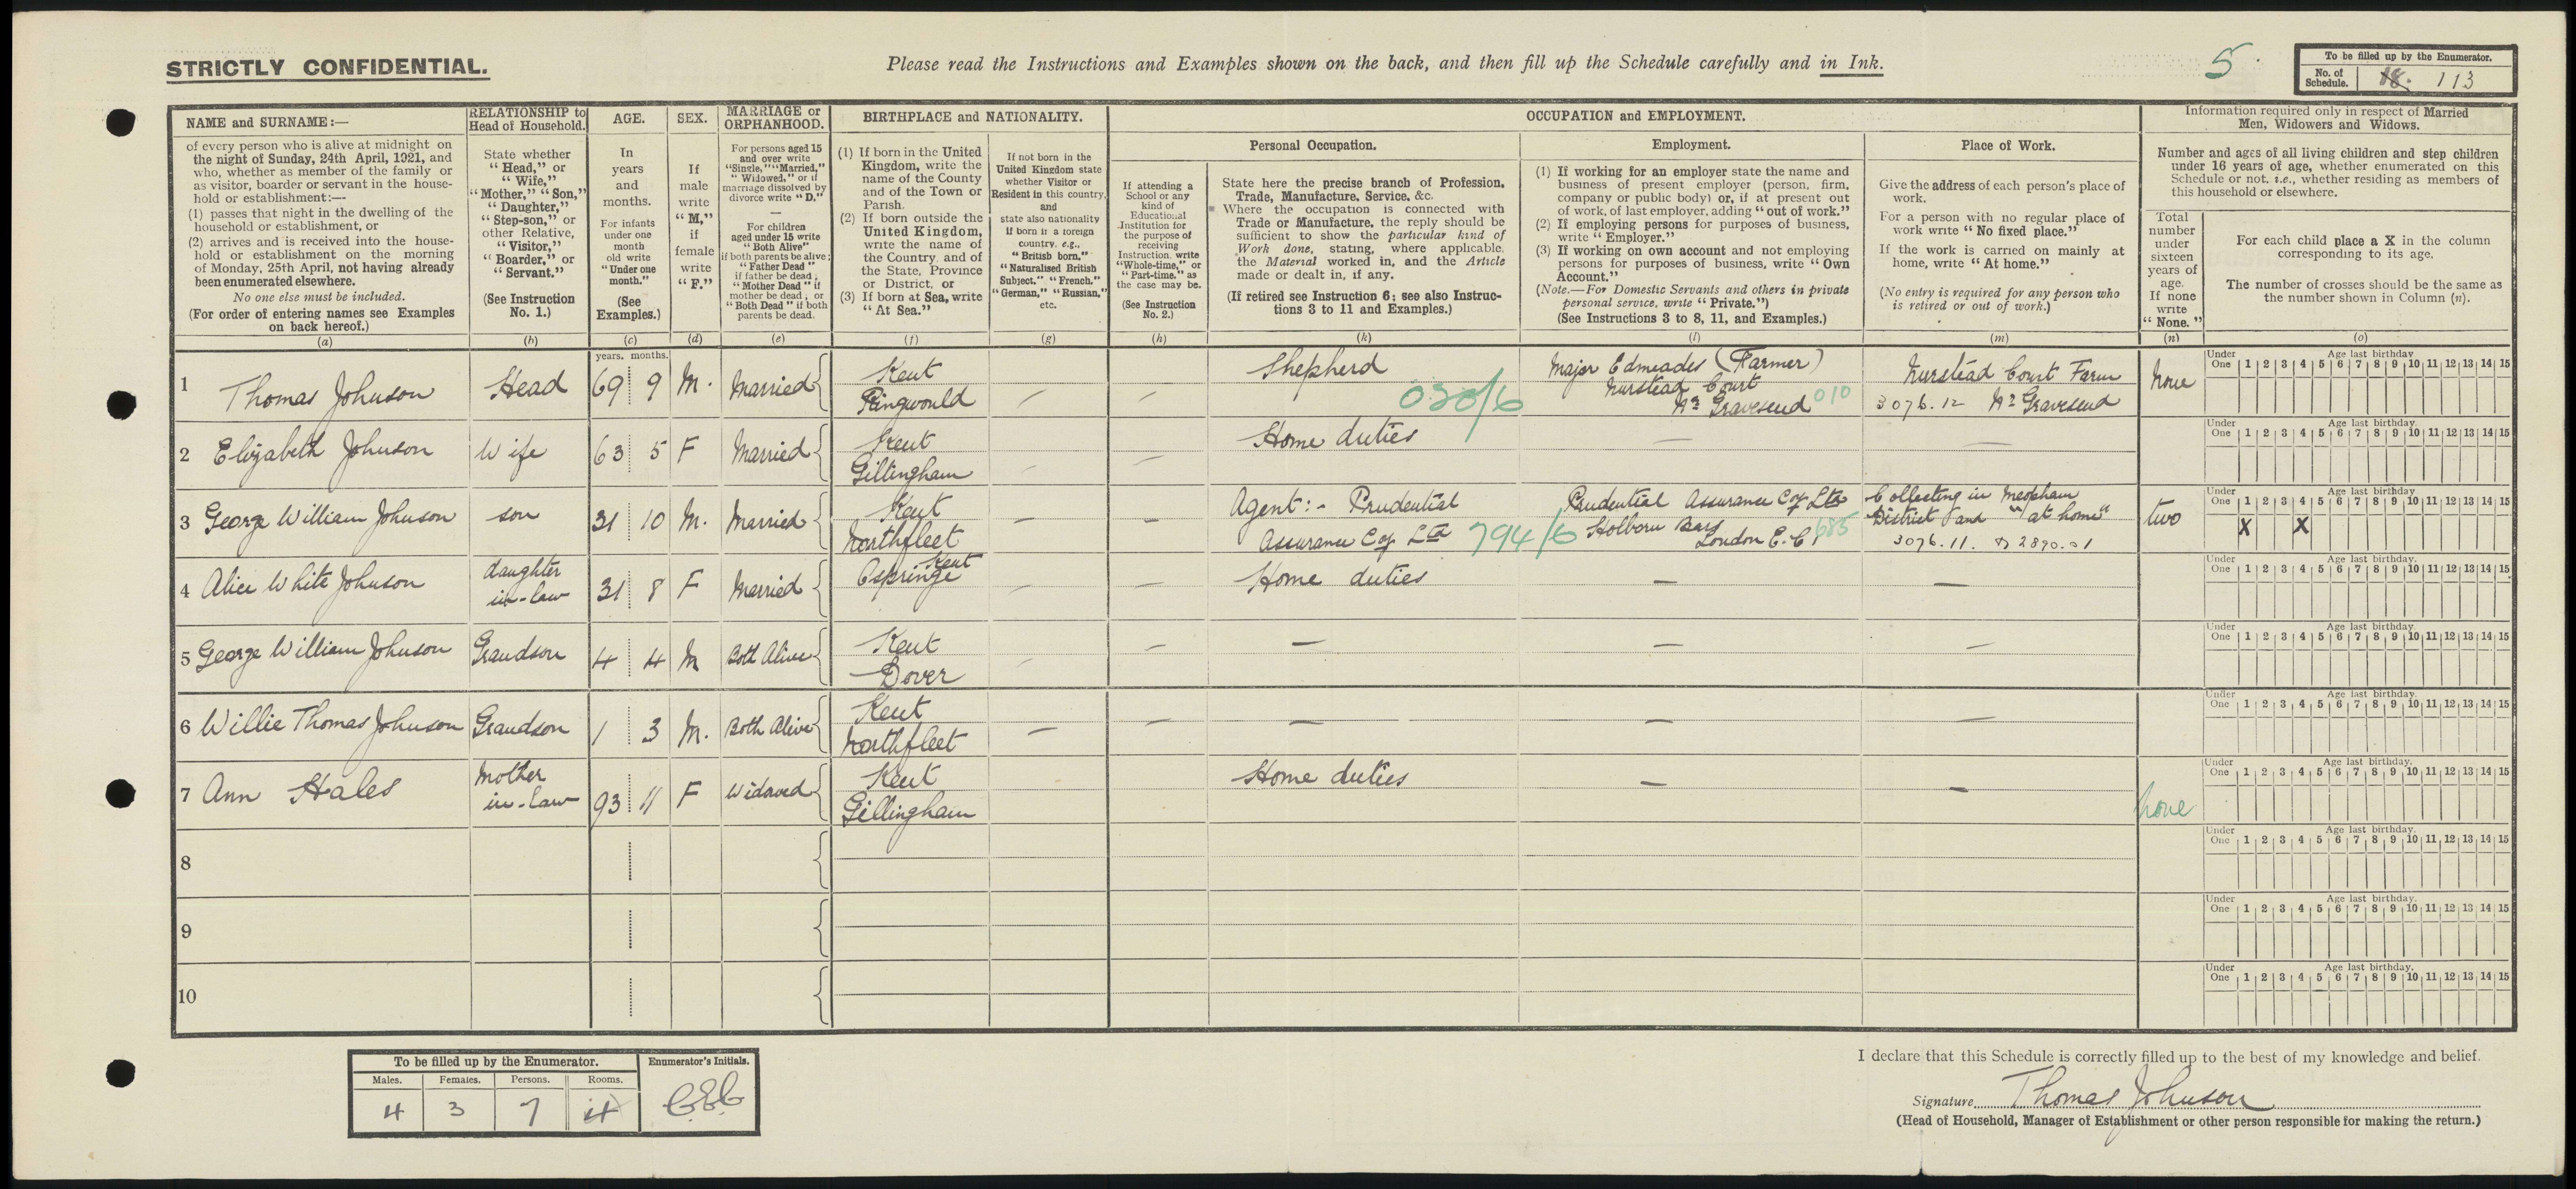 STRICTLY CONFIDENTIAL.
Please read the Instructions and Examples shown on the back, and then fill up the Schedule carefully and in Ink.
5
To be filled up by the Enumerator.
No. of Schedule. 113
NAME and SURNAME:—
of every person who is alive at midnight on
the night of Sunday, 24th April, 1921, and
who, whether as member of the family or
as visitor, boarder or servant in the house-
hold or establishment:—
(1) passes that night in the dwelling of the
household or establishment, or
(2) arrives and is received into the house-
hold or establishment on the morning
of Monday, 25th April, not having already
been enumerated elsewhere.
No one else must be included.
(For order of entering names see Examples
on back hereof.)
(a)
RELATIONSHIP to
Head of Household.
State whether
"Head," or
"Wife,"
"Mother," "Son,"
"Daughter,"
"Step-son," or
other Relative,
"Visitor,"
"Boarder," or
"Servant."
(See Instruction
No. 1.)
(b)
AGE.
In
years
and
months.
For infants
under one
month
old write
"Under one
month."
(See
Examples.)
(c)
SEX.
If
male
write
"M,"
if
female
write
"F."
(d)
MARRIAGE or
ORPHANHOOD.
For persons aged 15
and over write
"Single," "Married,"
"Widowed," or if
marriage dissolved by
divorce write "D."
—
For children
aged under 15 write
"Both Alive"
if both parents be alive;
"Father Dead"
if father be dead;
"Mother Dead" if
mother be dead; or
"Both Dead" if both
parents be dead.
(e)
BIRTHPLACE and NATIONALITY.
(1) If born in the United
Kingdom, write the
name of the County
and of the Town or
Parish.
(2) If born outside the
United Kingdom,
write the name of
the Country and of
the State, Province
or District, or
(3) If born at Sea, write
"At Sea."
(f)
If not born in the
United Kingdom state
whether Visitor or
Resident in this country,
and
state also nationality
if born in a foreign
country, e.g.,
"British born,"
"Naturalised British
Subject," "French,"
"German," "Russian,"
etc.
(g)
OCCUPATION and EMPLOYMENT.
If attending a
School or any
kind of
Educational
Institution for
the purpose of
receiving
Instruction, write
"Whole-time," or
"Part-time," as
the case may be.
(See Instruction
No. 2.)
(h)
Personal Occupation.
State here the precise branch of Profession,
Trade, Manufacture, Service, &c.
Where the occupation is connected with
Trade or Manufacture, the reply should be
sufficient to show the particular kind of
Work done, stating, where applicable,
the Material worked in, and the Article
made or dealt in, if any.
(If retired see Instruction 6; see also Instruc-
tions 3 to 11 and Examples.)
(k)
Employment.
(1) If working for an employer state the name and
business of present employer (person, firm,
company or public body) or, if at present out
of work, of last employer, adding "out of work."
(2) If employing persons for purposes of business,
write "Employer."
(3) If working on own account and not employing
persons for purposes of business, write "Own
Account."
(Note.—For Domestic Servants and others in private
personal service, write "Private.")
(See Instructions 3 to 8, 11, and Examples.)
(l)
Place of Work.
Give the address of each person's place of
work.
For a person with no regular place of
work write "No fixed place."
If the work is carried on mainly at
home, write "At home."
(No entry is required for any person who
is retired or out of work.)
(m)
Information required only in respect of Married
Men, Widowers and Widows.
Number and ages of all living children and step children
under 16 years of age, whether enumerated on this
Schedule or not, i.e., whether residing as members of
this household or elsewhere.
Total
number
under
sixteen
years of
age.
If none
write
"None."
(n)
For each child place a X in the column
corresponding to its age.
The number of crosses should be the same as
the number shown in Column (n).
(o)
years. months.
1 Thomas Johnson Head 69 9 M. Married Kent Ringwould — — Shepherd 030/6 Major Edmeades (Farmer) Nurstead Court Nr Gravesend 010 Nurstead Court Farm 3076.12 Nr Gravesend None
Under One Age last birthday 1 2 3 4 5 6 7 8 9 10 11 12 13 14 15
2 Elizabeth Johnson Wife 63 5 F Married Kent Gillingham — — Home duties — —
Under One Age last birthday. 1 2 3 4 5 6 7 8 9 10 11 12 13 14 15
3 George William Johnson son 31 10 M. Married Kent Northfleet — — Agent:- Prudential Assurance Coy Ltd 794/6 Prudential Assurance Coy Ltd Holborn Bars London E.C.1 685 Collecting in Meopham District and "at home" 3076.11. & 2890.01 two
Under One Age last birthday 1 2 3 4 5 6 7 8 9 10 11 12 13 14 15
X X
4 Alice White Johnson daughter in-law 31 8 F Married Ospringe Kent — — Home duties — —
Under One Age last birthday. 1 2 3 4 5 6 7 8 9 10 11 12 13 14 15
5 George William Johnson Grandson 4 4 M Both Alive Kent Dover — — — — —
Under One Age last birthday. 1 2 3 4 5 6 7 8 9 10 11 12 13 14 15
6 Willie Thomas Johnson Grandson 1 3 M. Both Alive Kent Northfleet — — — — —
Under One Age last birthday. 1 2 3 4 5 6 7 8 9 10 11 12 13 14 15
7 Ann Hales Mother in-law 93 11 F Widowed Kent Gillingham Home duties — — none
Under One Age last birthday. 1 2 3 4 5 6 7 8 9 10 11 12 13 14 15
8
Under One Age last birthday. 1 2 3 4 5 6 7 8 9 10 11 12 13 14 15
9
Under One Age last birthday. 1 2 3 4 5 6 7 8 9 10 11 12 13 14 15
10
Under One Age last birthday. 1 2 3 4 5 6 7 8 9 10 11 12 13 14 15
To be filled up by the Enumerator. Enumerator's Initials.
Males. Females. Persons. Rooms.
4 3 7 4
I declare that this Schedule is correctly filled up to the best of my knowledge and belief.
Signature Thomas Johnson
(Head of Household, Manager of Establishment or other person responsible for making the return.)